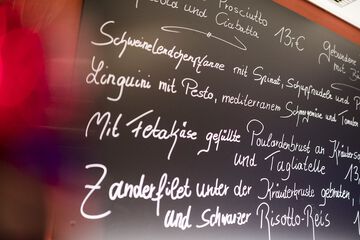 Prosciutto
und Ciabatta 13,-€
Gebundene
mit
Schweinelendchenpfanne mit Spinat, Schupfnudeln und
Linguini mit Pesto, mediterranem Schmorgemüse und Tomaten
Mit Fetakäse gefüllte Poulardenbrust an Kräuter
und Tagliatelle 13,
Zanderfilet unter der Kräuterkruste gebraten,
und Schwarzer Risotto-Reis 1